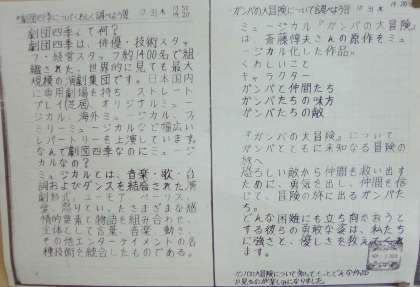 劇団四季についてくわしく調べよう!!
劇団四季って何?
劇団四季は、俳優・技術スタッ
フ・経営スタッフ約1400名で組
織された、世界的に見ても最大
規模の演劇集団です。日本国内
に専用劇場を持ち、ストレート
プレイ(芝居)、オリジナルミュー
ジカル、海外ミュージカル、ファ
ミリーミュージカルなど幅広い
レパートリーを上演しています。
なんで劇団四季なのにミュージ
カルなの?
ミュージカルとは、音楽・歌・台
詞およびダンスを結合された演
劇形式。ユーモア、ペーソス、
愛、怒りといったさまざまな感
情的要素と物語を組み合わせ、
全体として言葉、音楽、動き、
その他エンターテイメントの各
種技術を統合したものである。
ガンバの大冒険について調べよう!!
ミュージカル『ガンバの大冒険』
は、斎藤惇夫さんの原作をミュ
ージカル化した作品。
くわしいこと
キャラクター
ガンバと仲間たち
ガンバたちの味方
ガンバたちの敵
『ガンバの大冒険』について
ガンバとともに未知なる冒険の
旅へ
恐ろしい敵から仲間を救い出す
ために、勇気を出し、仲間を信
じて、冒険の旅に出るガンバた
ち。
どんな困難にも立ち向かおうと
する彼らの勇敢な姿は、私たち
に強さと、優しさを教えて
ガンバの大冒険について知って、もっと
見るのが楽しみになりました。